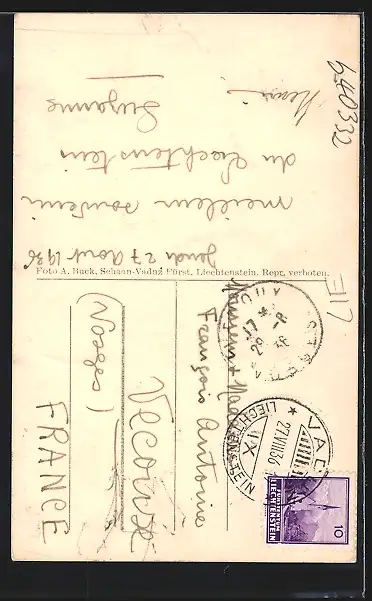 640332
Jeudi 27 Août 1936
meilleur souvenir
du Liechtenstein
Suzanne
Henri
Foto A. Buck, Schaan-Vaduz Fürst. Liechtenstein. Repr. verboten.
=117
Monsieur & Madame
François Antoine
Vecoux
(Vosges)
FRANCE
17
28-8
36
VOSGES
VADUZ
27.VIII.36
IX
LIECHTENSTEIN
10
FÜRSTENTUM
LIECHTENSTEIN